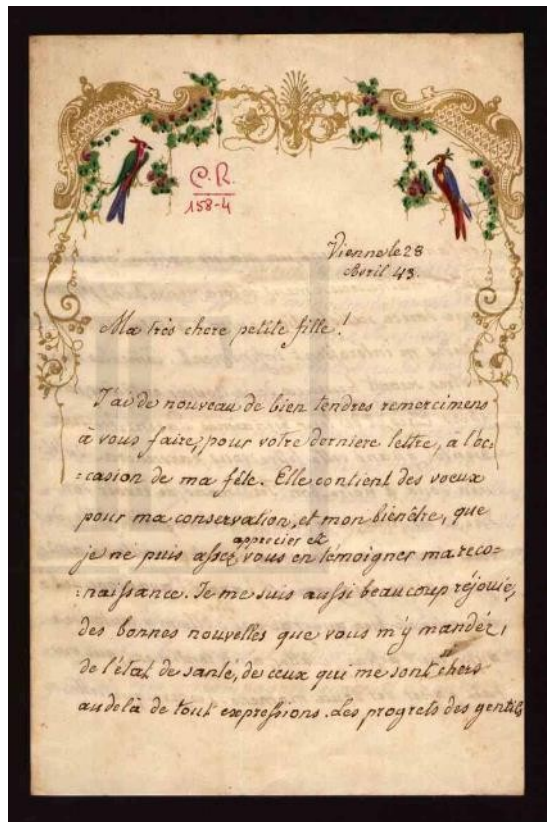 C.R.
158-4
Vienne le 28
Avril 43.
Ma très chere petite fille!
J'ai de nouveau de bien tendres remercimens
à vous faire, pour votre derniere lettre, a l'oc-
:casion de ma fête. Elle contient des voeux
pour ma conservation, et mon bienêtre, que
apprecier et
je ne puis assez vous en témoigner ma reco-
:naissance. Je me suis aussi beaucoup réjouie,
des bonnes nouvelles que vous m'y mandéz,
de l'état de santé, de ceux qui me sont chers
au delà de tout expressions. Les progrets des gentils